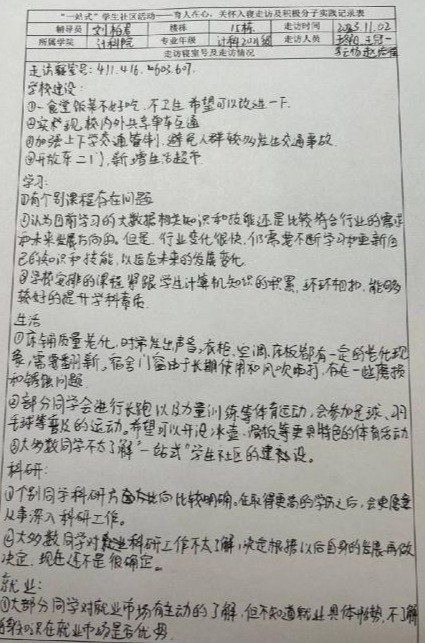 “一站式”学生社区活动——育人在心，关怀入寝走访及积极分子实践记录表
辅导员 刘柏君 楼栋 15栋 走访时间 2023.11.02
所属学院 计科院 专业年级 计科20级 走访人员
走访寝室号及走访情况
走访寝室号：411.416. 603.607.
学校建设：
①一食堂饭菜不好吃，不卫生 希望可以改进一下.
②实现校内外共享单车互通
③加强上下学交通管制，避免人群较多发生交通事故.
④开放东二门，新增生活超市
学习：
①有个别课程存在问题
②认为目前学习的大数据相关知识和技能还是比较符合行业的需求
和未来发展方向的。但是，行业变化很快，仍需要不断学习和更新自
己的知识和技能，以适应未来的发展变化.
③学校安排的课程紧跟学生计算机知识的积累，环环相扣，能够
较好的提升学科素质.
生活
①床铺质量老化，时常发出声音，衣柜，空调，床板都有一定的老化现
象，需要翻新。宿舍门窗由于长期使用和风吹雨打，存在一些磨损
和锈蚀问题.
②部分同学会进行长跑以及力量训练等体育运动，会参加足球、羽
毛球等普及的运动。希望可以开设冰壶、滑板等更具特色的体育活动
③大多数同学不太了解“一站式”学生社区的建设。
科研：
①个别同学科研方向比较明确，在取得更高的学历之后，会更愿意
从事深入科研工作。
②大多数同学对科研工作不太了解，决定根据以后自身的发展再做
决定，现在还不是很确定。
就业：
①大部分同学对就业市场有主动的了解，但不知道就业具体形势，不了解
知识在就业市场是否优势.